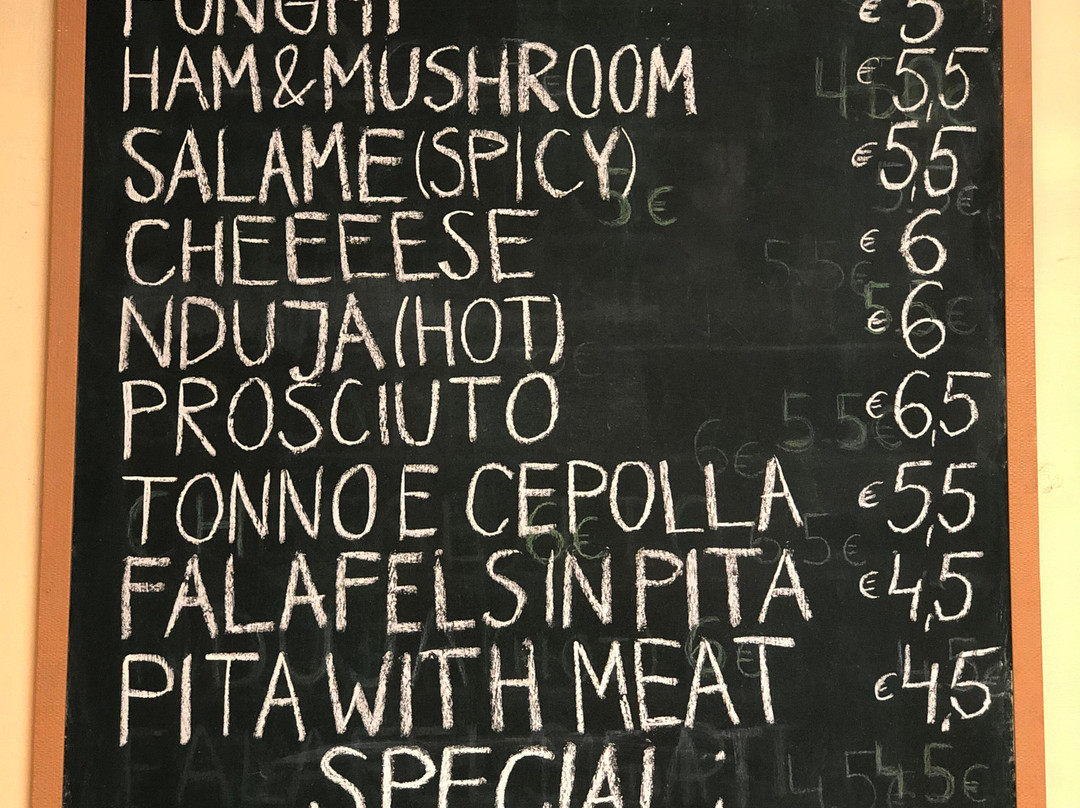 FUNGHI €5
HAM&MUSHROOM €5,5
SALAME(SPICY) €5,5
CHEEEESE €6
NDUJA(HOT) €6
PROSCIUTO €6,5
TONNO E CEPOLLA €5,5
FALAFELS IN PITA €4,5
PITA WITH MEAT €4,5
SPECIAL: